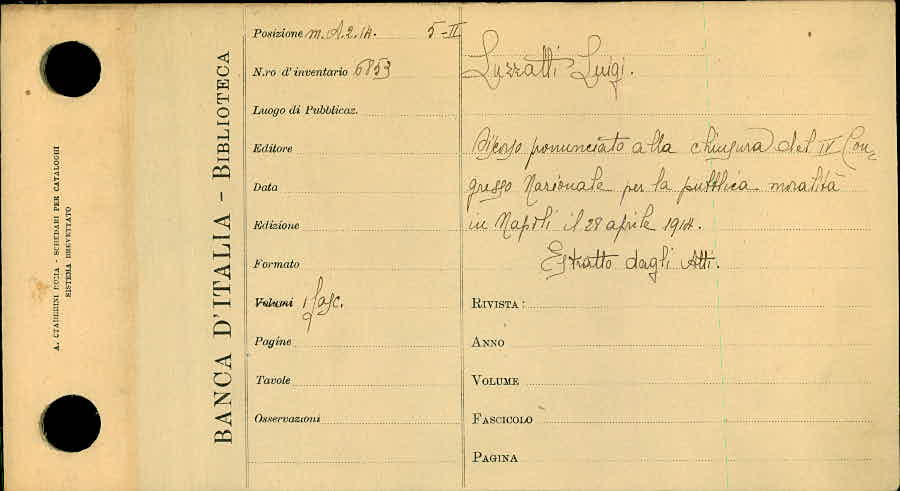 A. STADERINI ROMA - SCHEDARI PER CATALOGHI
SISTEMA BREVETTATO
BANCA D'ITALIA - BIBLIOTECA
Posizione m. A. 2. 14. 5-II
N.ro d'inventario 6853
Luogo di Pubblicaz.
Editore
Data
Edizione
Formato
Volumi 1 fasc.
Pagine
Tavole
Osservazioni
Luzzatti Luigi.
Discorso pronunciato alla chiusura del IV Con-
gresso Nazionale per la pubblica moralità
in Napoli il 28 aprile 1914.
Estratto dagli Atti.
RIVISTA:
ANNO
VOLUME
FASCICOLO
PAGINA